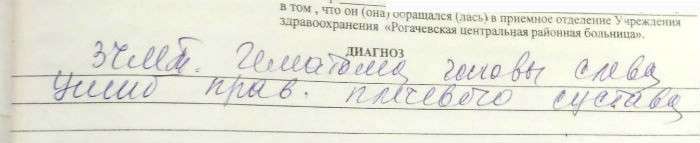 в том , что он (она) обращался (лась) в приемное отделение Учреждения
здравоохранения «Рогачевская центральная районная больница».
ДИАГНОЗ
ЗЧМТ. Гематома головы слева
Ушиб прав. плечевого сустава